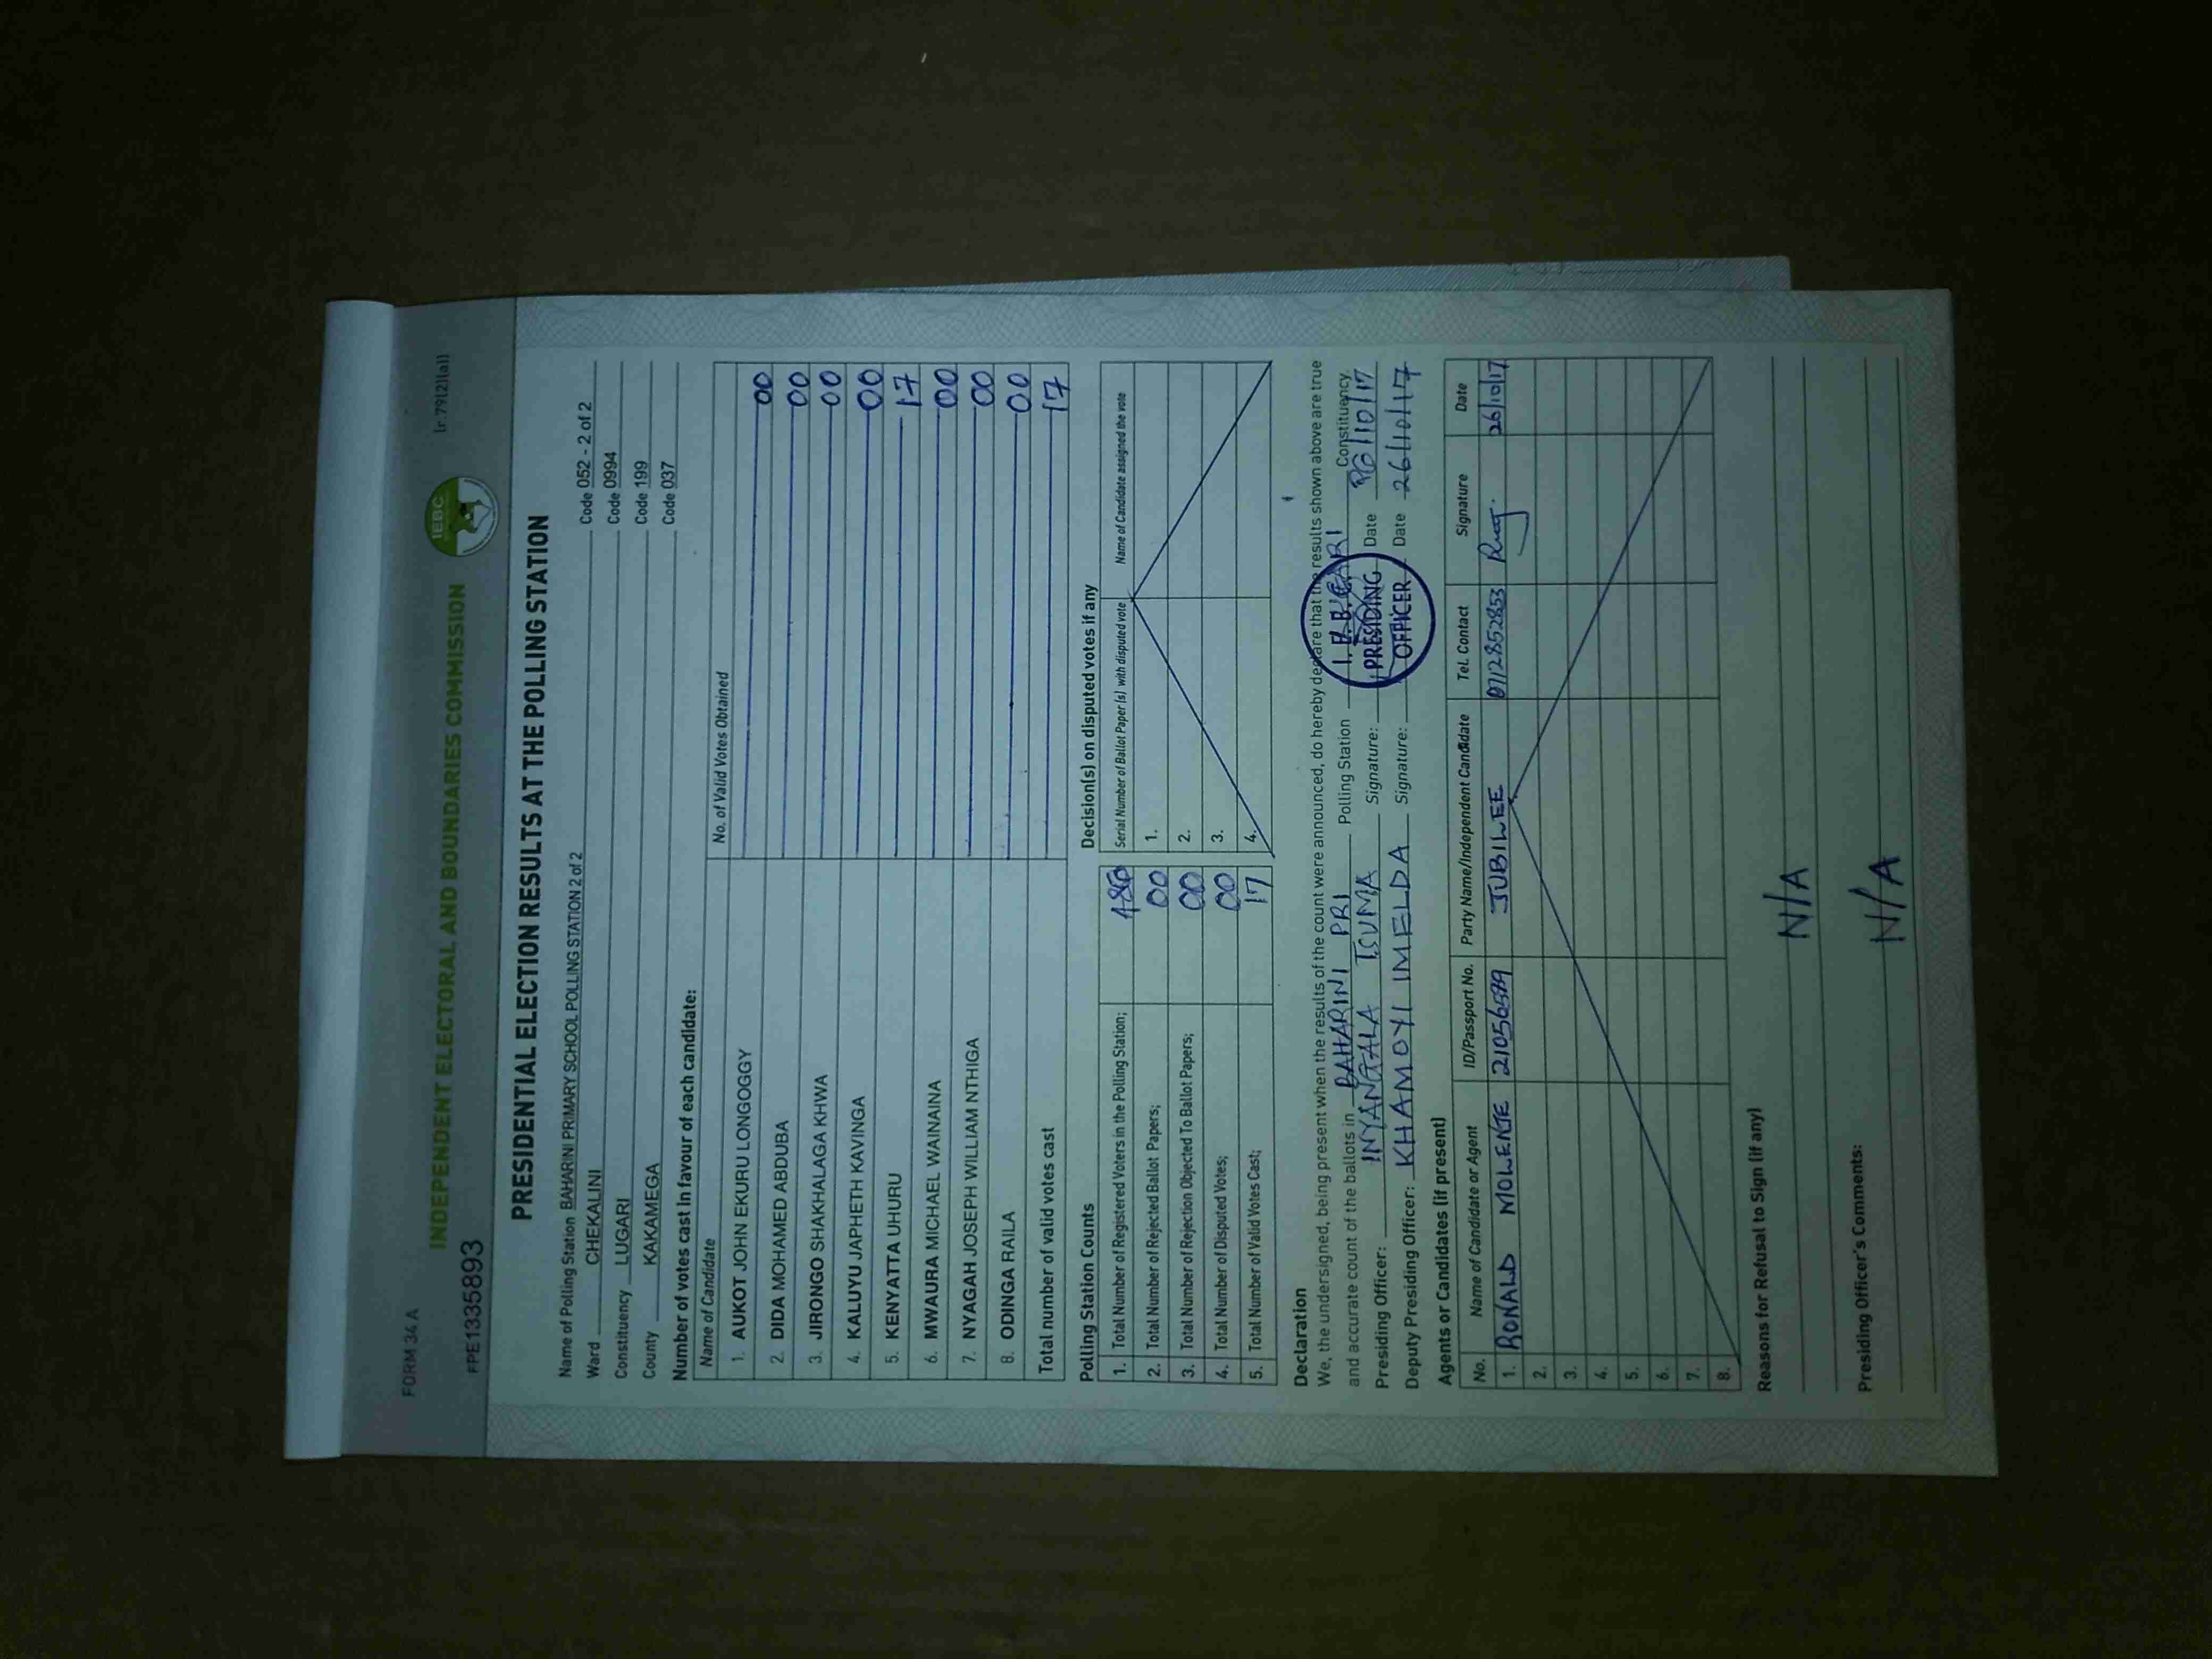 FORM 34 A
[r.79(2)(a)]
IEBC
INDEPENDENT ELECTORAL AND BOUNDARIES COMMISSION
FPE1335893
PRESIDENTIAL ELECTION RESULTS AT THE POLLING STATION
Name of Polling Station BAHARINI PRIMARY SCHOOL POLLING STATION 2 of 2
Ward CHEKALINI Code 052 - 2 of 2
Constituency LUGARI Code 0994
County KAKAMEGA Code 199
Code 037
Number of votes cast in favour of each candidate:
Name of Candidate No. of Valid Votes Obtained
1. AUKOT JOHN EKURU LONGOGGY 00
2. DIDA MOHAMED ABDUBA 00
3. JIRONGO SHAKHALAGA KHWA 00
4. KALUYU JAPHETH KAVINGA 00
5. KENYATTA UHURU 17
6. MWAURA MICHAEL WAINAINA 00
7. NYAGAH JOSEPH WILLIAM NTHIGA 00
8. ODINGA RAILA 00
Total number of valid votes cast 17
Polling Station Counts
1. Total Number of Registered Voters in the Polling Station;
2. Total Number of Rejected Ballot Papers; 00
3. Total Number of Rejection Objected To Ballot Papers; 00
4. Total Number of Disputed Votes; 00
5. Total Number of Valid Votes Cast; 17
Decision(s) on disputed votes if any
Serial Number of Ballot Paper (s) with disputed vote Name of Candidate assigned the vote
1.
2.
3.
4.
Declaration
We, the undersigned, being present when the results of the count were announced, do hereby declare that the results shown above are true
and accurate count of the ballots in BAHARINI PRI Polling Station Constituency.
Presiding Officer: TSUMA Signature: Date 26/10/17
Deputy Presiding Officer: KHAMOYI IMELDA Signature: Date 26/10/17
PRESIDING
OFFICER
Agents or Candidates (if present)
No. Name of Candidate or Agent ID/Passport No. Party Name/Independent Candidate Tel. Contact Signature Date
1. RONALD JUBILEE 0712852853 26/10/17
2.
3.
4.
5.
6.
7.
8.
Reasons for Refusal to Sign (if any)
N/A
Presiding Officer's Comments:
N/A